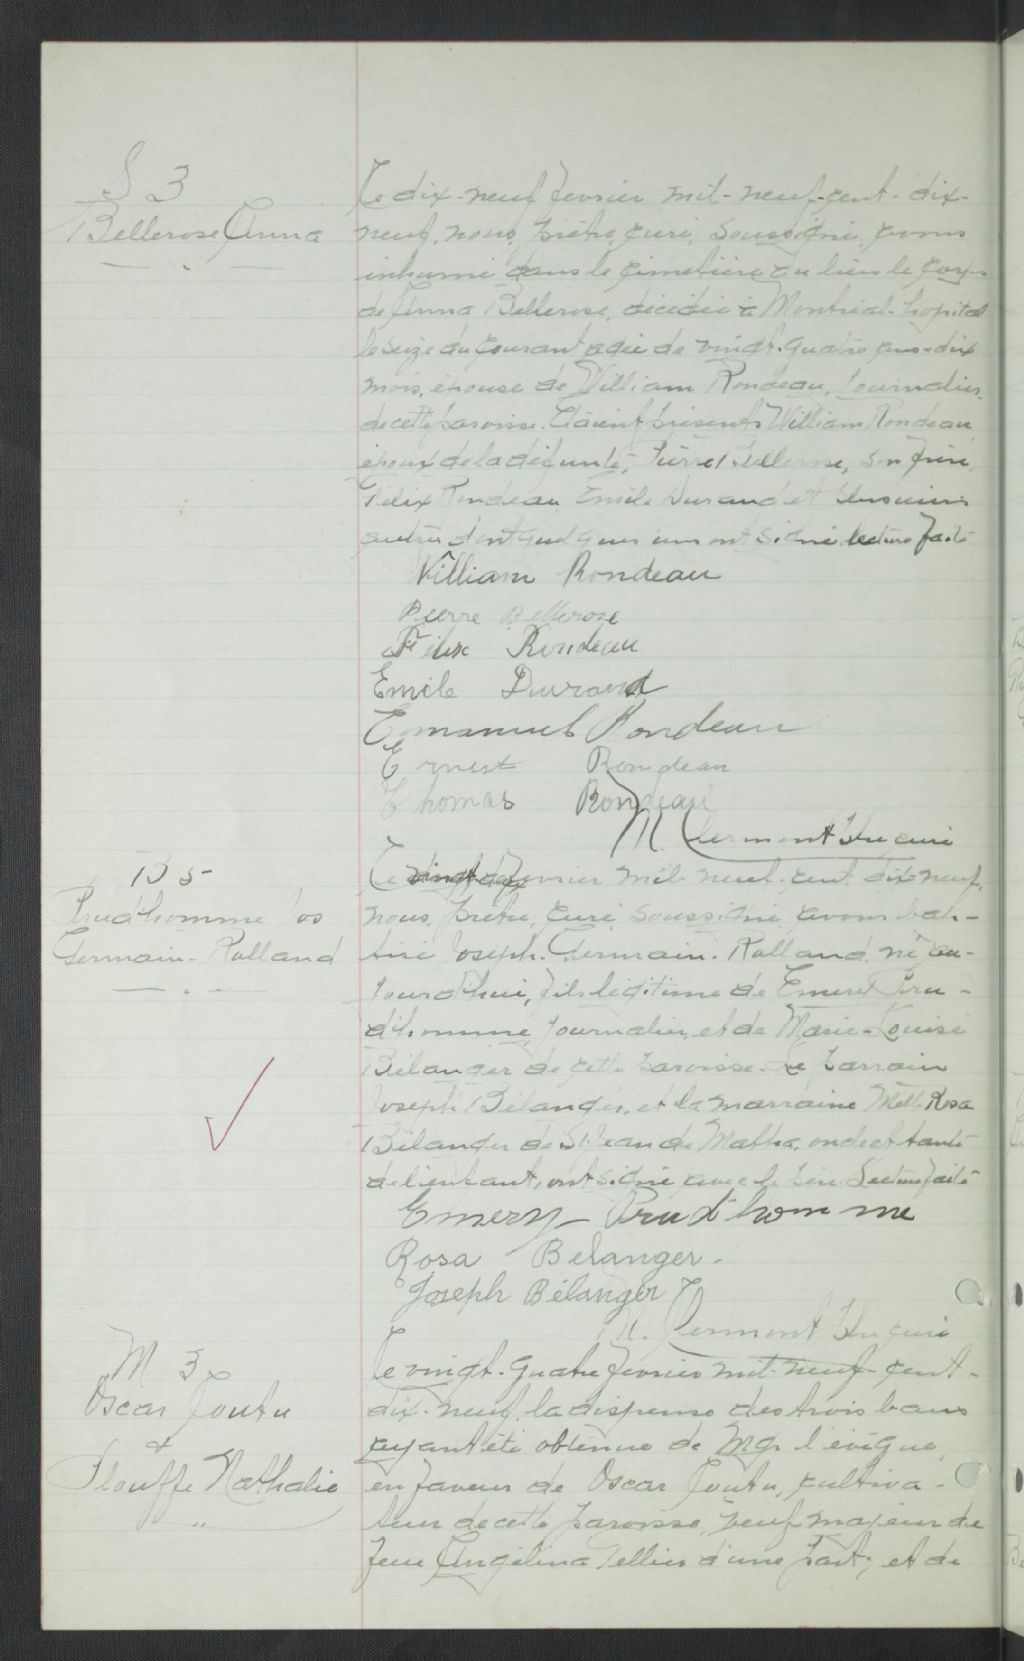 S 3
Bellerose Anna
Le dix-neuf fevrier mil-neuf-cent-dix-
neuf, nous, prêtre, curé, soussigné, avons
inhumé dans le cimetière du lieu le corps
de Anna Bellerose, décédée à Montréal-hopital
le seize du courant agée de vingt-quatre ans-dix
mois, épouse de William Rondeau, journalier,
de cette paroisse. Etaient présents William Rondeau
époux de la défunte, Pierre Bellerose, son frère,
Félix Rondeau, Emile Durand et plusieurs
autres dont quelques uns ont signé lecture faite
William Rondeau
Pierre Bellerose
Félix Rondeau
Emile Durand
Emanuel Rondeau
Ernest Rondeau
Thomas Rondeau
M Clermont Ptre curé
B 5
Prud'homme Jos
Germain-Rolland
Le fevrier mil-neuf-cent dix-neuf,
nous, prêtre, curé, soussigné avons bap-
tisé Joseph-Germain-Rolland, né au-
jourd'hui, fils légitime de Emeret Pru-
d'homme, journalier, et de Marie-Louise
Bélanger de cette paroisse. Le parrain
Joseph Bélanger, et la marraine Melle Rosa
Bélanger de St. Jean de Matha, oncle et tante
de l'enfant, ont signé avec le père. Lecture faite
Emery Prud'homme
Rosa Belanger.
Joseph Bélanger
M. Clermont Ptre curé
M 3
Oscar Coutu
&
Plouffe Nathalie
Le vingt-quatre fevrier mil-neuf-cent-
dix-neuf, la dispense des trois bans
ayant été obtenue de Mgr l'évêque,
en faveur de Oscar Coutu, cultiva-
teur de cette paroisse, veuf majeur de
feue Angélina Tellier d'une part; et de